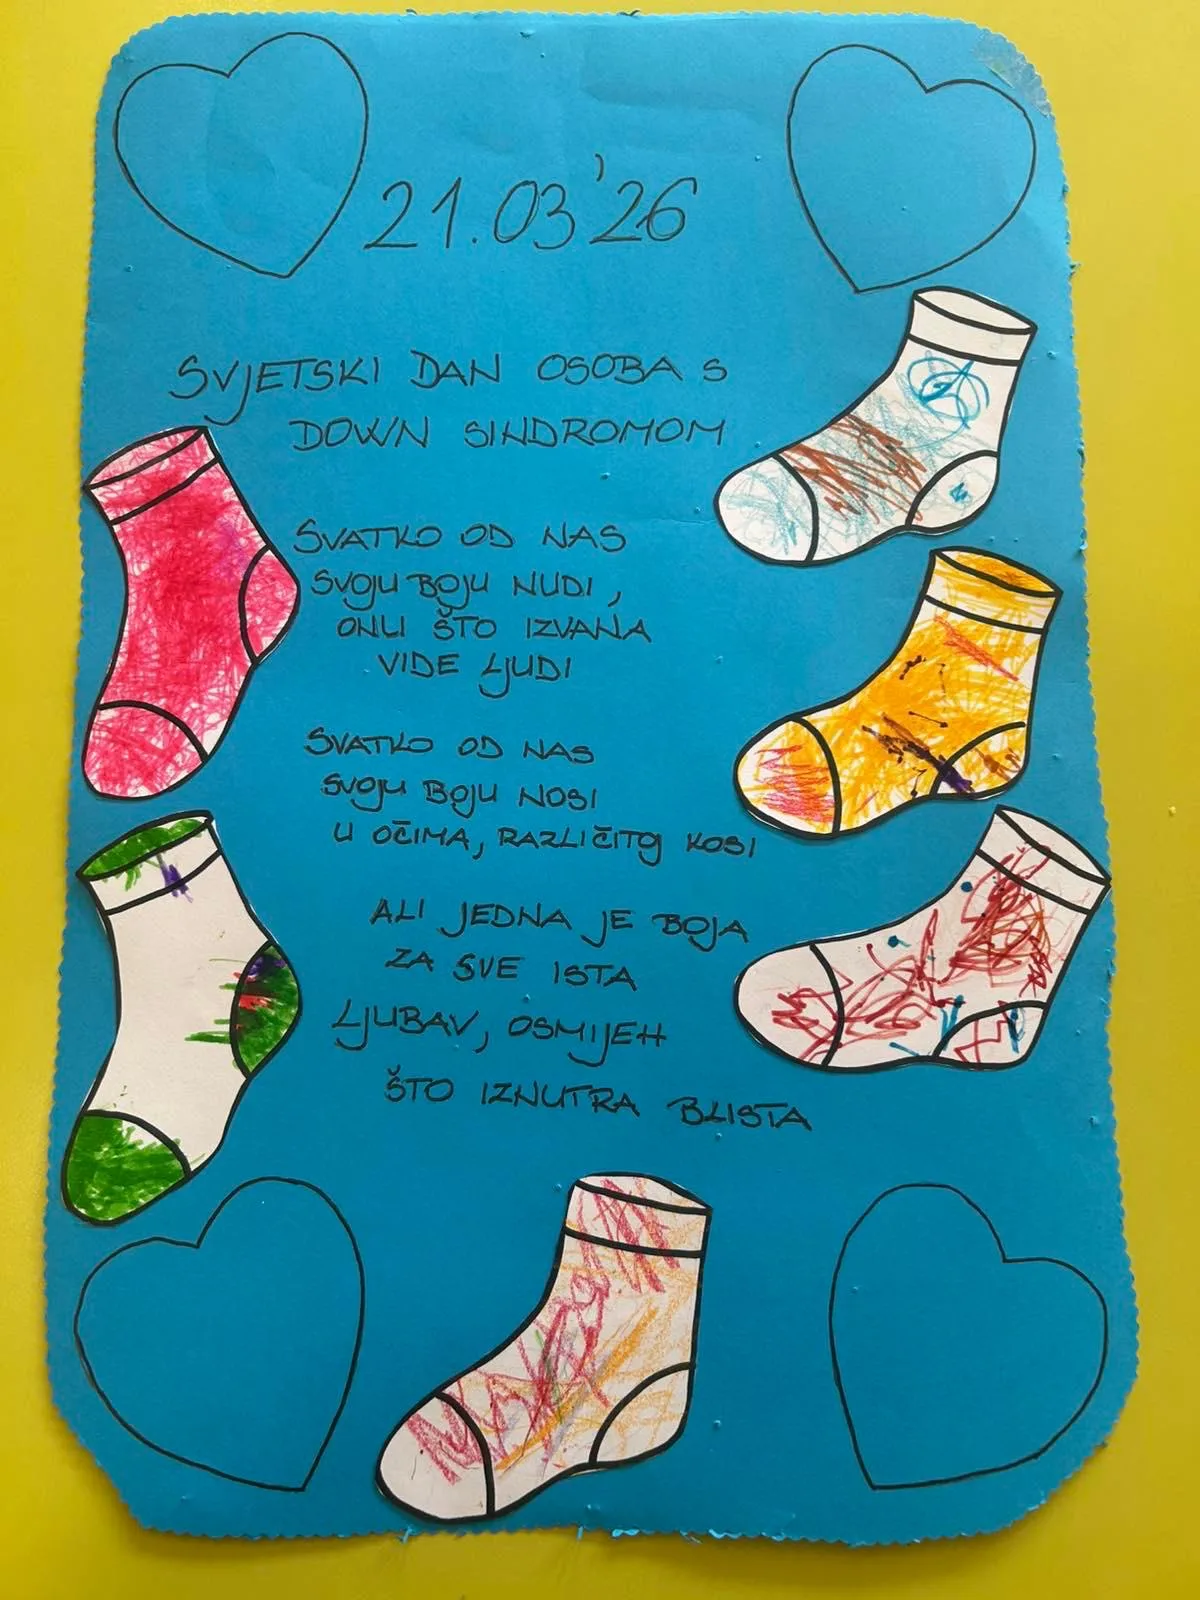 21.03'26
SVJETSKI DAN OSOBA S
DOWN SINDROMOM
SVATKO OD NAS
SVOJU BOJU NUDI,
ONU ŠTO IZVANA
VIDE LJUDI
SVATKO OD NAS
SVOJU BOJU NOSI
U OČIMA, RAZLIČITOJ KOSI
ALI JEDNA JE BOJA
ZA SVE ISTA
LJUBAV, OSMIJEH
ŠTO IZNUTRA BLISTA